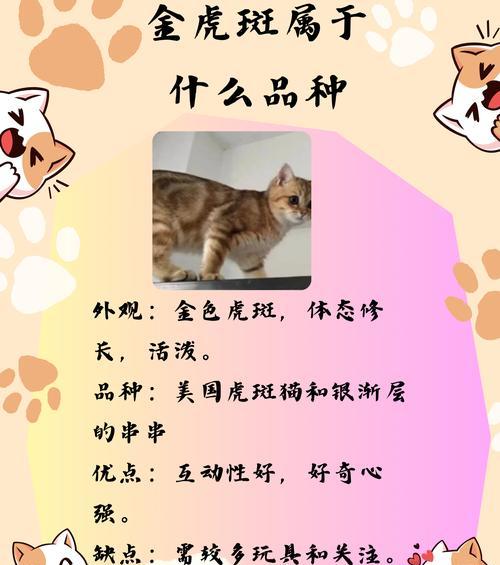 金虎斑属于
什么品种
外观：金色虎斑，体态修
长，活泼。
品种：美国虎斑猫和银渐层
的串串
优点：互动性好，好奇心
强。
缺点：需较多玩具和关注。